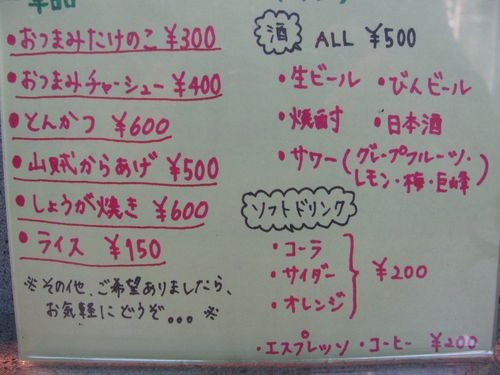 ・おつまみたけのこ ¥300
・おつまみチャーシュー ¥400
・とんかつ ¥600
・山賊からあげ ¥500
・しょうが焼き ¥600
・ライス ¥150
※その他、ご希望ありましたら、
お気軽にどうぞ... ※
酒 ALL ¥500
・生ビール ・びんビール
・焼酎 ・日本酒
・サワー(グレープフルーツ・
レモン・梅・巨峰)
ソフトドリンク
・コーラ
・サイダー ¥200
・オレンジ
・エスプレッソ ・コーヒー ¥200